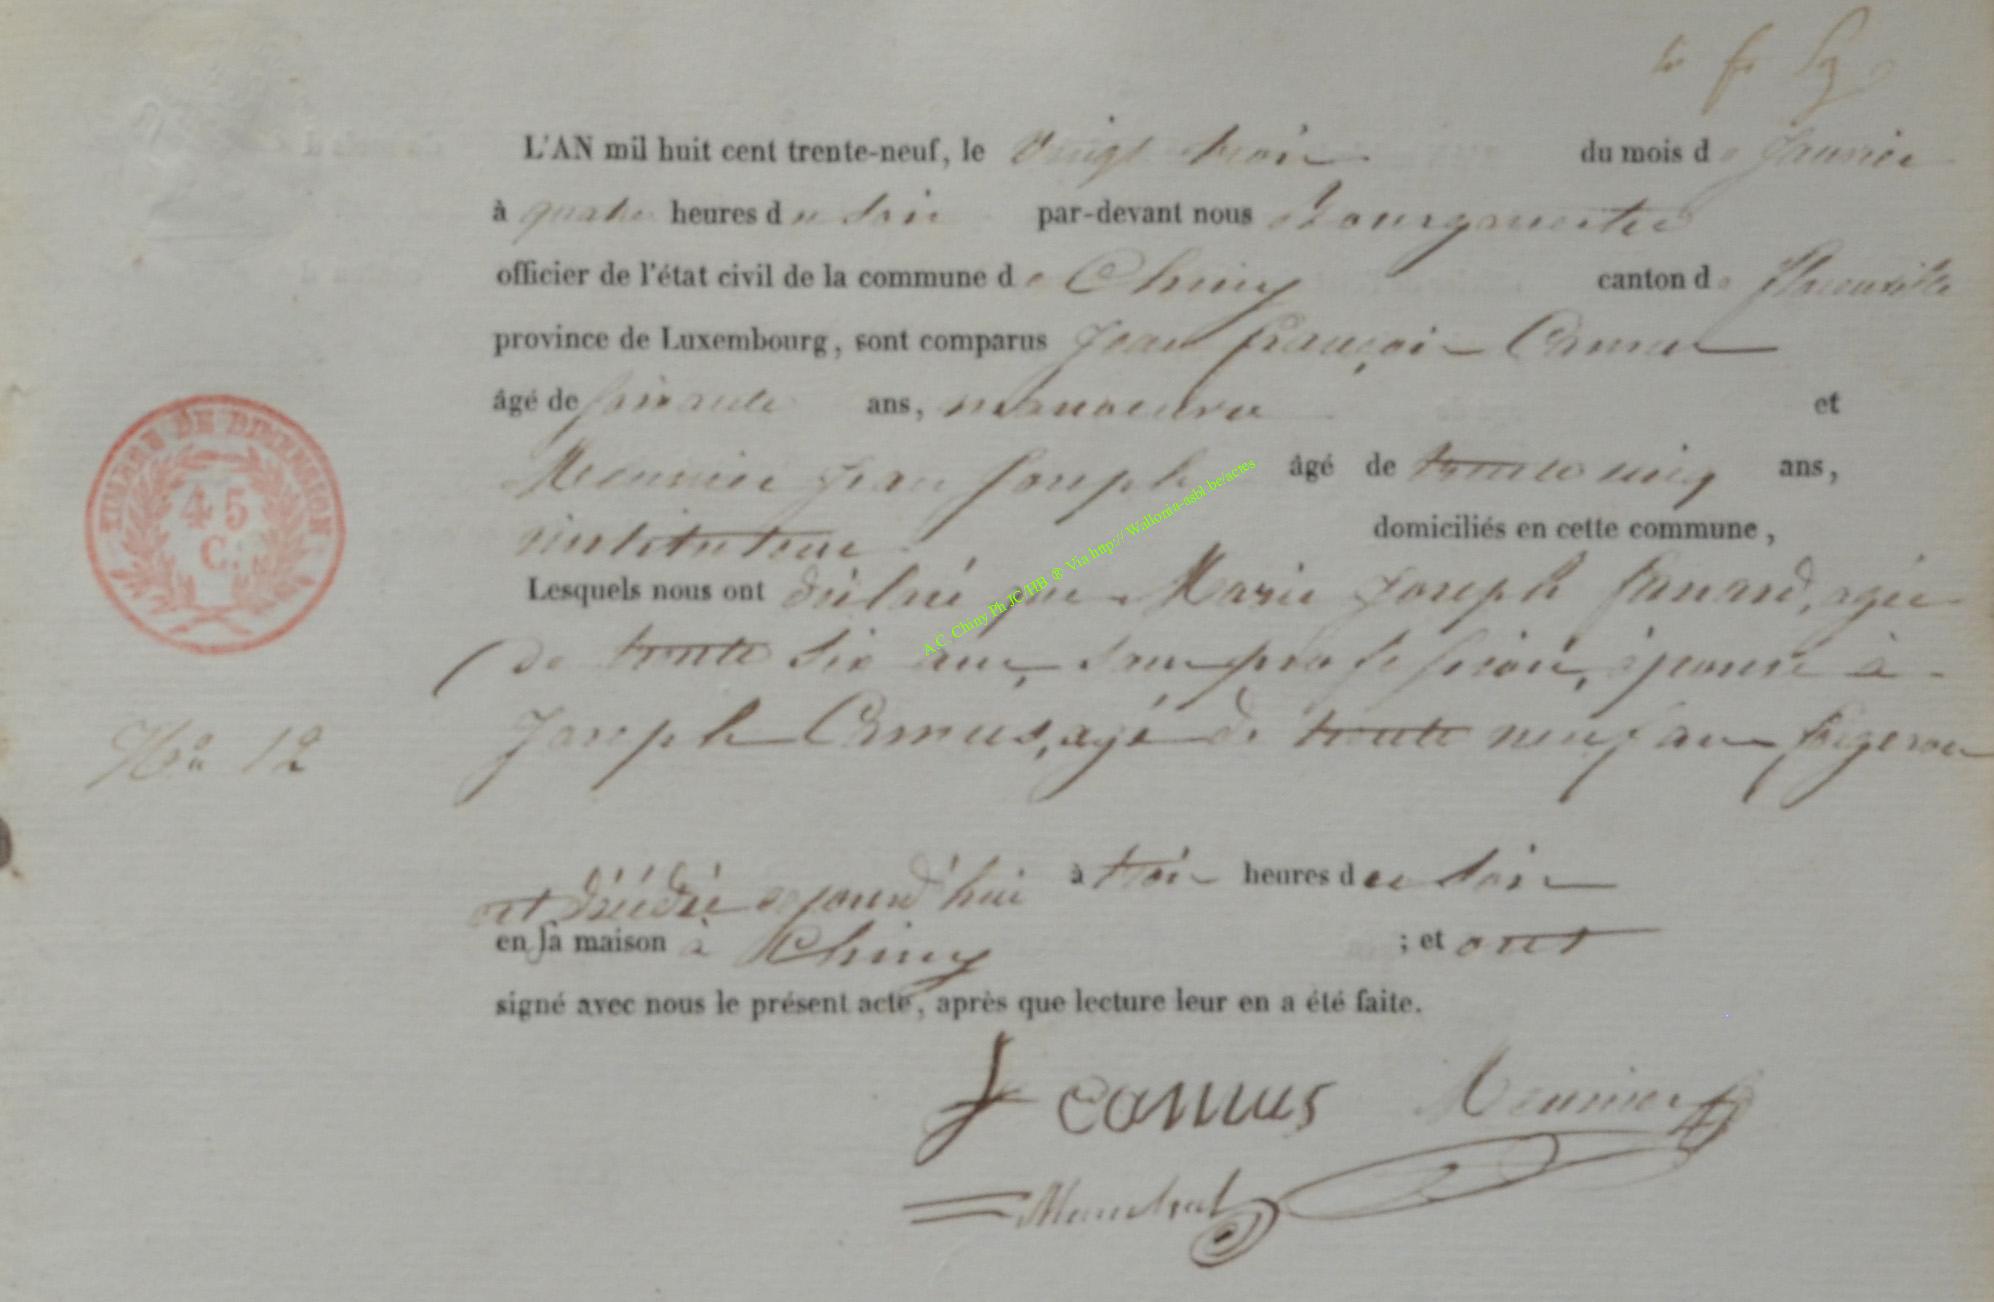 L'AN mil huit cent trente-neuf, le vingt trois du mois de Janvier
à quatre heures du soir par-devant nous Bourgmestre
officier de l'état civil de la commune de Chiny canton de Florenville
province de Luxembourg, sont comparus Jean françois Camus
âgé de soixante ans, manoeuvre et
Meunier Jean Joseph âgé de trente cinq ans,
instituteur domiciliés en cette commune,
TIMBRE DE DIMENSION
45
C.
Lesquels nous ont déclaré que Marie Joseph agée
de trente six ans, sans profession, épouse à
Joseph Camus, agé de trente neuf ans forgeron
No 12
est décédée aujourd'hui à trois heures du soir
en sa maison à Chiny ; et ont
signé avec nous le présent acte, après que lecture leur en a été faite.
J camus Meunier
A.C. Chiny Ph JC/HB ® Via http://Wallonia-asbl.be/actes